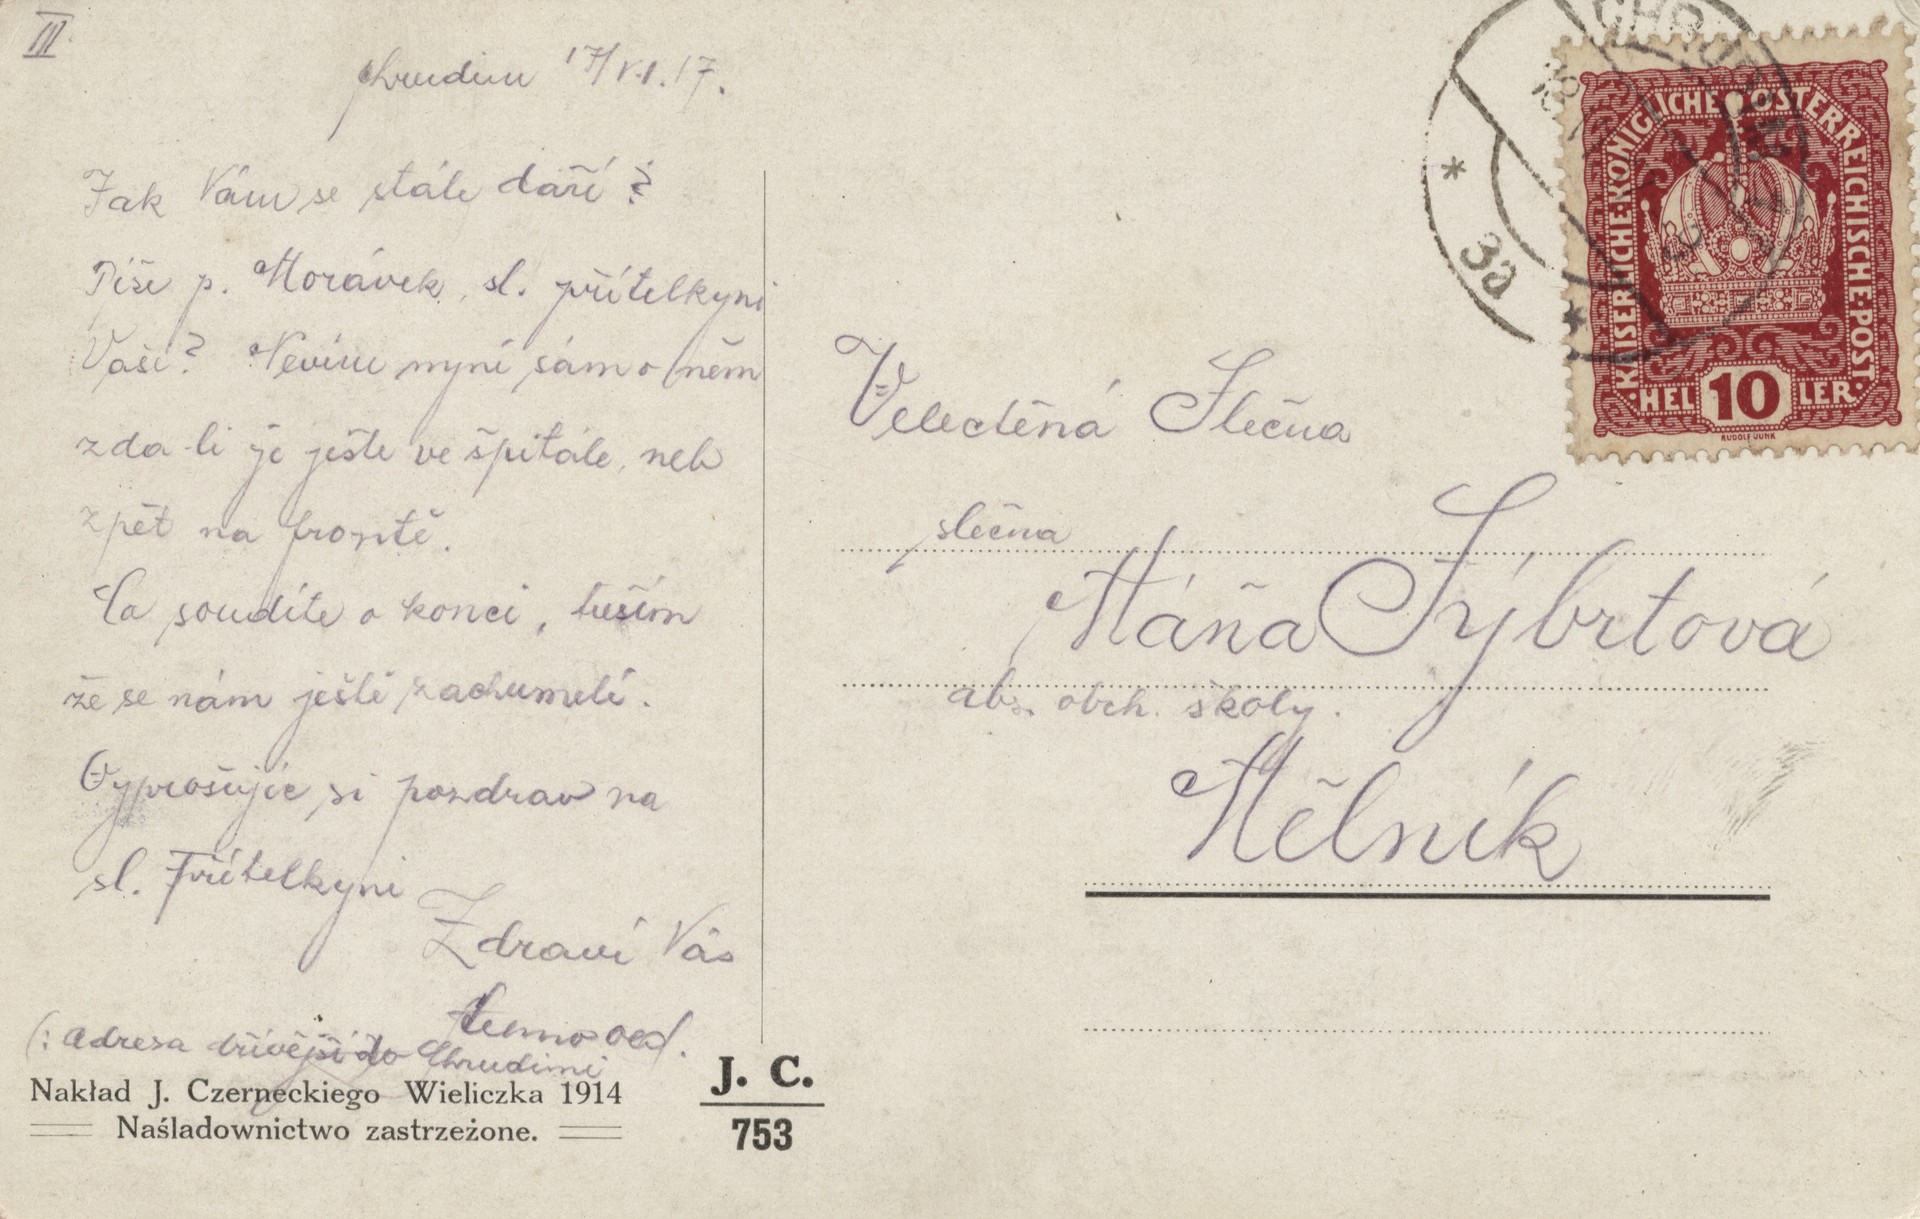 III.
Chrudim 17/VI.17.
Jak Vám se stále daří?
Píše p. Morávek, sl. přítelkyni
Vaší? Nevím nyní sám o něm
zda-li je ješte ve špitále, neb
zpět na frontě.
Co soudíte o konci, tuším
že se nám ještě zachumelí.
Vyprošujíc si pozdrav na
sl. Přítelkyni
Zdraví Vás
(: adresa dřívější do Chrudimi
Nakład J. Czerneckiego Wieliczka 1914
Naśladownictwo zastrzeżone.
J. C.
753
Veleděná Slečna
slečna
Máňa Sýbrtová
abs. obch. školy.
Mělník
CHRUDIM
3a
KAISERLICHE·KÖNIGLICHE·ÖSTERREICHISCHE·POST·
HELLER 10
RUDOLF JUNK